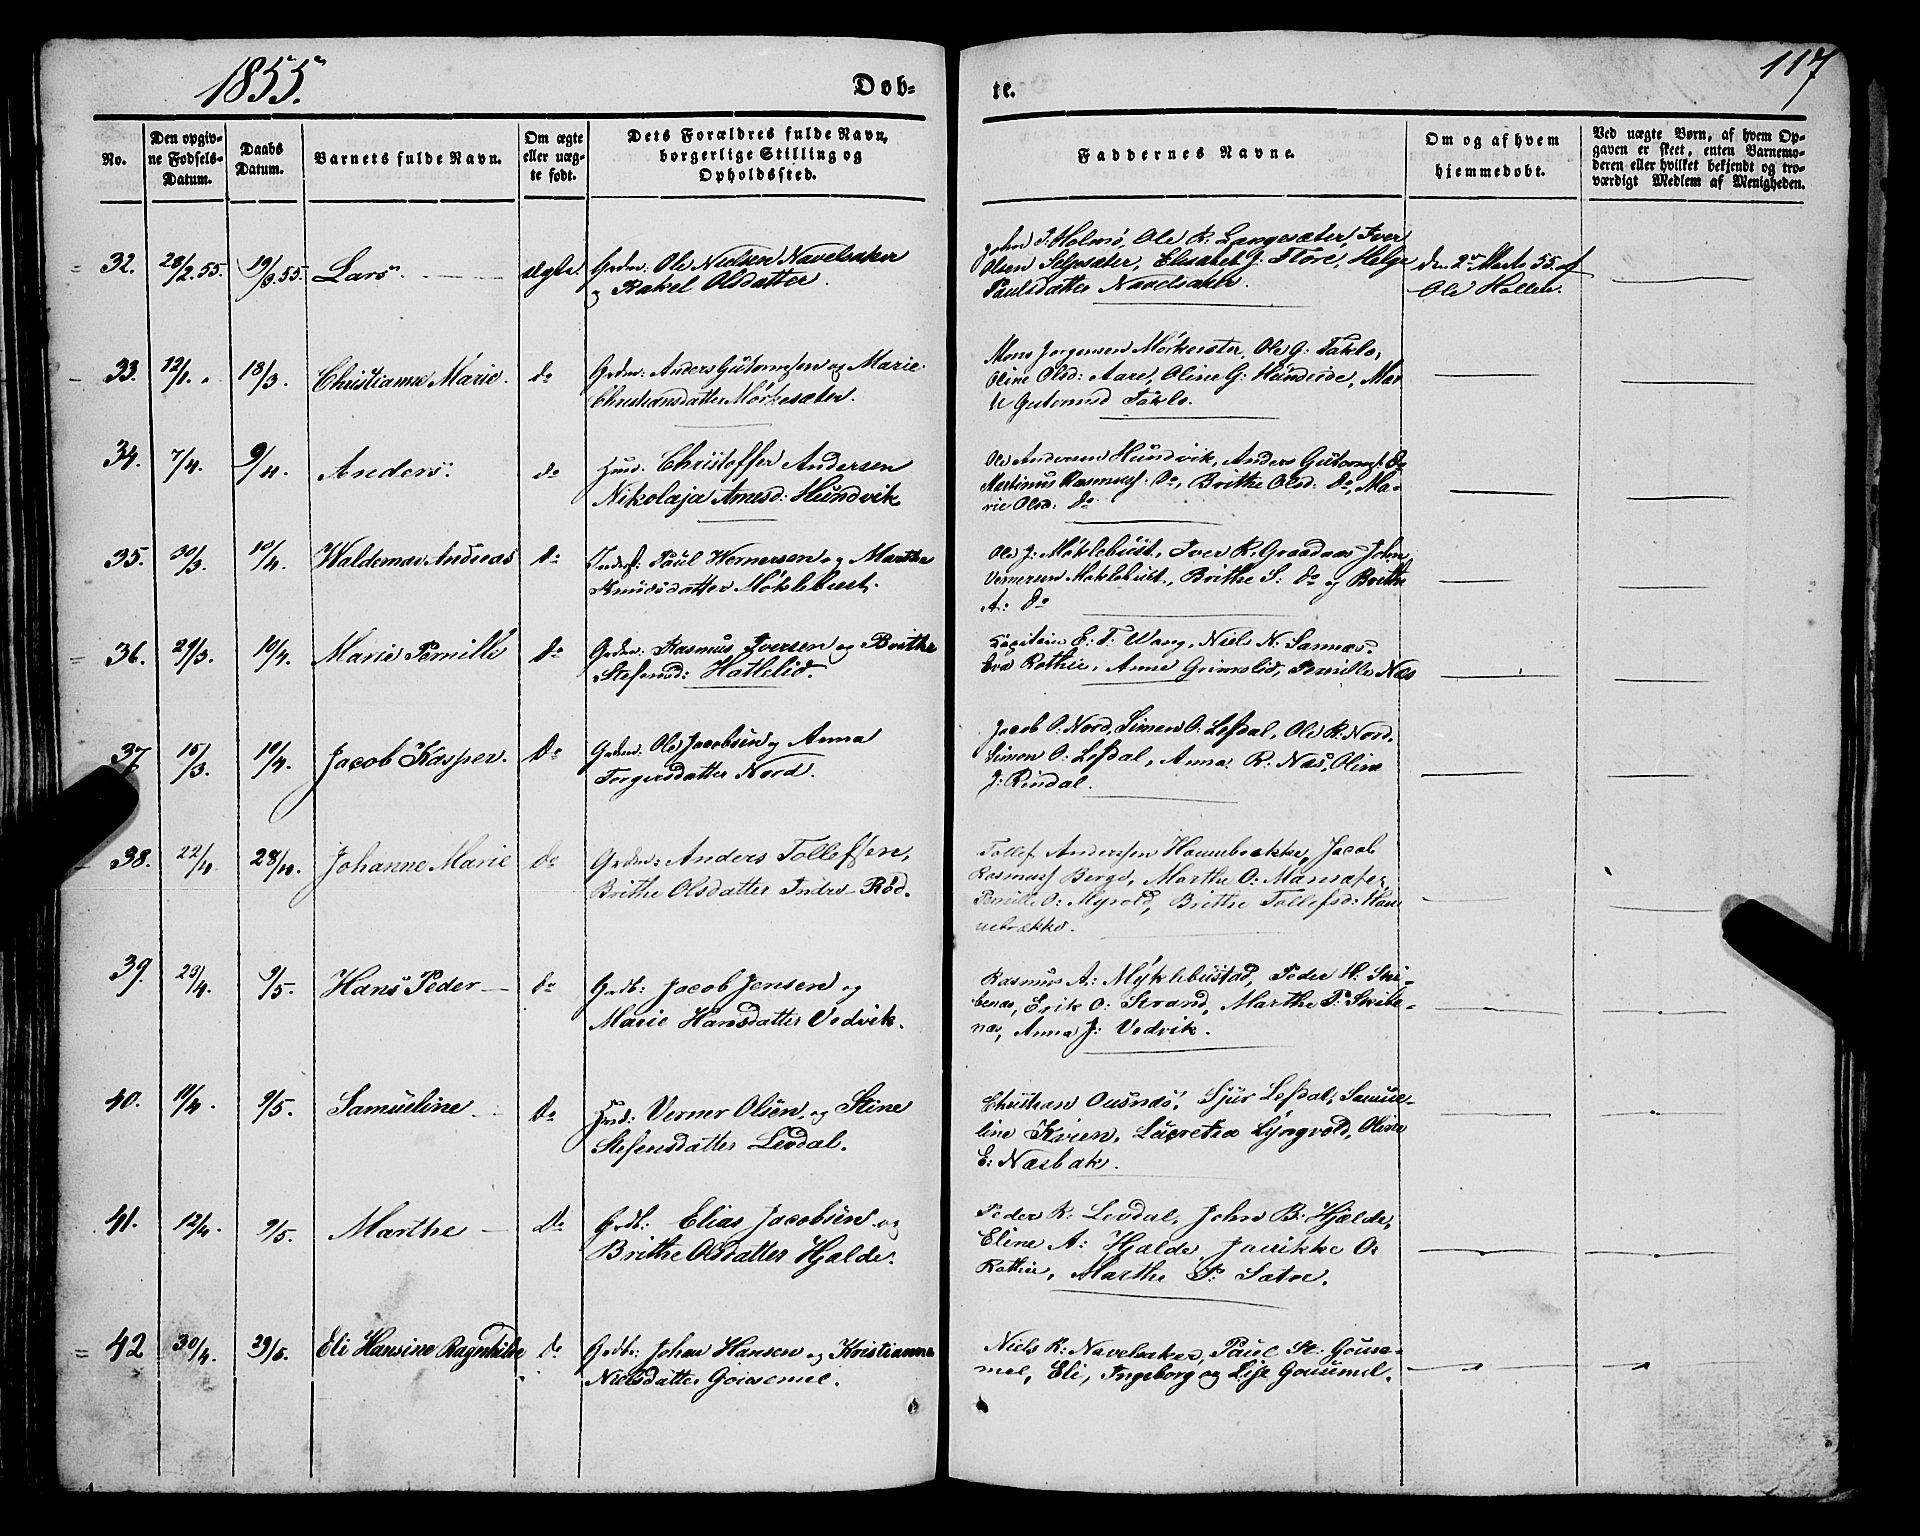 1855.
Døb-
te.
117
No.
Den opgiv-
ne Fødsels-
Datum.
Daabs
Datum.
Barnets fulde Navn.
Om ægte
eller uæg-
te født.
Dets Forældres fulde Navn,
borgerlige Stilling og
Opholdssted.
Faddernes Navne.
Om og af hvem
hjemmedøbt.
Ved uægte Børn, af hvem Op-
gaven er skeet, enten Barnemo-
deren eller hvilket bekjendt og tro-
værdigt Medlem af Menigheden.
32. 28/2.55. 19/3.55. Lars. ægte. Grdm: Ole Nielsen Navelsaker
og Rakel Olsdatter.
John J: Holmø, Ole R: Langesæter, Iver
Olsen Seljesæter, Elisabet J: Flore, Helge
Paulsdatter Navelsaker.
den 2den Marts 55 af
Ole Hollen.
33. 12/1. " 18/3. Christianne Marie. do Grdm: Anders Guttormsen og Marie
Christiansdatter Mørkesæter.
Mons Jørgensen Mørkesæter, Ole G: Taklo,
Oline Olsd: Aare, Oline G: Hundeide, Mar
it Guttormsd Taklo.
34. 7/4. 9/4. Anders: do Hmd: Christoffer Andersen
Nikolaja Arnesd: Hundvik
Ole Andersen Hundvik, Anders Guttormsf: do
Martinus Rasmusf. do, Brithe Olsd: do, Ma-
rie Olsd: do
35. 30/3. 10/4. Waldemar Andreas do Inderst: Paul Wernersen og Marthe
Knudsdatter Møklebust.
Ole J: Møklebust, Iver R: Graadaas John
Vernersen Møklebust, Brithe S: do og Brithe
A: do
36. 29/3. 10/4. Marie Pernille do Grdm: Rasmus Iversen og Brithe
Stefensd: Hatlelid.
Capitein E: T. Wang, Niels N: Sannæs,
Eva Rothie, Anne Grimslid, Pernille Næs
37. 15/3. 10/4. Jacob Kasper. Do Grdm: Ole Jacobsen og Anna
Torgersdatter Nord.
Jacob O: Nord, Simen O: Lefdal, Ole R: Nord.
Simon O: Lefdal, Anna R: Næs, Oline
J: Rindal.
38. 22/4 28/4. Johanne Marie do Grdm: Anders Tollefsen,
Brithe Olsdatter Indre Rød.
Tollef Anderssen Haunebrekke, Jacob
Rasmusf Berge, Marthe O:
Pernille O: Myrold, Brithe Tollefsd: Hau
nebrække.
39. 23/4. 9/5. Hans Peder do Grdb: Jacob Jensen og
Marie Hansdatter Vedvik.
Rasmus A: Myklebustad, Peder H: Skri-
benæs, Erik O: Strand, Marthe P: Skribe-
næs, Anna J: Vedvik.
40. 11/4. 9/5. Samueline do Hmd: Verner Olsen og Stine
Stefensdatter Levdal.
Christian Ousnæs, Sjur Lefdal, Samue-
line Kvien, Lucretia Lyngvold, Oline
E: Næsbak.
41. 12/4. 9/5. Marthe Do Grdb: Elias Jacobsen og
Brithe Olsdatter Hjalde.
Peder R: Levdal, John B: Hjælde,
Eline A: Hjalde, Janikke O:
Rothie, Marthe P: Satre.
42 30/4. 29/5. Eli Hansine Ragnhilde do Grdb: Johan Hansen og Kristianne
Nielsdatter Gousemel.
Niels R: Navelsaker, Paul St: Gouse-
mel, Eli, Ingeborg og Lise Gousemel.